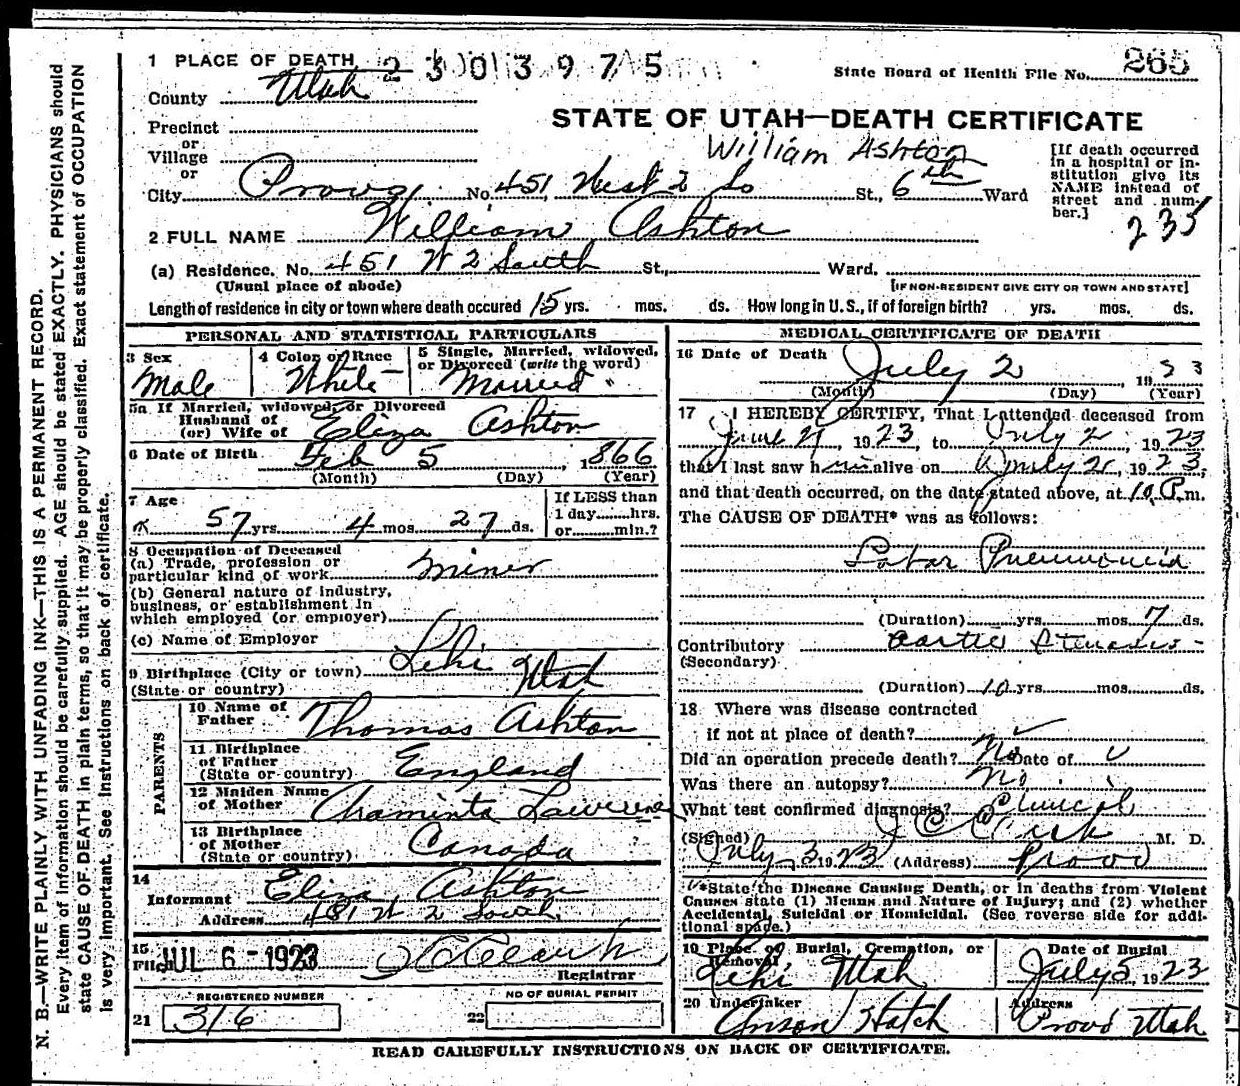 1 PLACE OF DEATH 2303975
State Board of Health File No. 265
County Utah
STATE OF UTAH—DEATH CERTIFICATE
Precinct
or
Village
William Ashton
or
City Provo, No. 451 West 2 So St., 6th Ward
[If death occurred in a hospital or in-
stitution give its
NAME instead of
street and num-
ber.]
235
2 FULL NAME William Ashton
(a) Residence. No. 451 W 2 South St., Ward.
(Usual place of abode) [IF NON-RESIDENT GIVE CITY OR TOWN AND STATE]
Length of residence in city or town where death occured 15 yrs. mos. ds. How long in U.S., if of foreign birth? yrs. mos. ds.
PERSONAL AND STATISTICAL PARTICULARS
3 Sex
Male
4 Color or Race
White
5 Single, Married, widowed,
or Divorced (write the word)
Married
5a If Married, widowed, or Divorced
Husband of
(or) Wife of Eliza Ashton
6 Date of Birth Feb 5, 1866
(Month) (Day) (Year)
7 Age
57 yrs. 4 mos. 27 ds.
If LESS than
1 day......hrs.
or......min.?
8 Occupation of Deceased
(a) Trade, profession or
particular kind of work Miner
(b) General nature of industry,
business, or establishment in
which employed (or employer)
(c) Name of Employer
9 Birthplace (City or town) Lehi Utah
(State or country)
PARENTS
10 Name of
Father Thomas Ashton
11 Birthplace
of Father
(State or country) England
12 Maiden Name
of Mother Araminta Lawrence
13 Birthplace
of Mother
(State or country) Canada
14
Informant Eliza Ashton
Address 451 W 2 South
15
Filed JUL 6 - 1923
Registrar
REGISTERED NUMBER
21 316
NO OF BURIAL PERMIT
22
MEDICAL CERTIFICATE OF DEATH
16 Date of Death
July 2, 1923
(Month) (Day) (Year)
17 I HEREBY CERTIFY, That I attended deceased from
June 27, 1923, to July 2, 1923
that I last saw him alive on July 2, 1923,
and that death occurred, on the date stated above, at 10 P.m.
The CAUSE OF DEATH* was as follows:
Lobar Pneumonia
(Duration) yrs. mos. 7 ds.
Contributory Aortic Stenosis
(Secondary)
(Duration) 10 yrs. mos. ds.
18 Where was disease contracted
if not at place of death?
Did an operation precede death? No Date of
Was there an autopsy? No
What test confirmed diagnosis? Clinical
(Signed) M. D.
July 3 1923 (Address) Provo
*State the Disease Causing Death, or in deaths from Violent
Causes state (1) Means and Nature of Injury; and (2) whether
Accidental, Suicidal or Homicidal. (See reverse side for addi-
tional space.)
19 Place of Burial, Cremation, or
Removal
Lehi Utah
Date of Burial
July 5, 1923
20 Undertaker
Anson Hatch
Address
Provo Utah
READ CAREFULLY INSTRUCTIONS ON BACK OF CERTIFICATE.
N. B.—WRITE PLAINLY WITH UNFADING INK—THIS IS A PERMANENT RECORD.
Every item of information should be carefully supplied. AGE should be stated EXACTLY. PHYSICIANS should
state CAUSE OF DEATH in plain terms, so that it may be properly classified. Exact statement of OCCUPATION
is very important. See instructions on back of certificate.